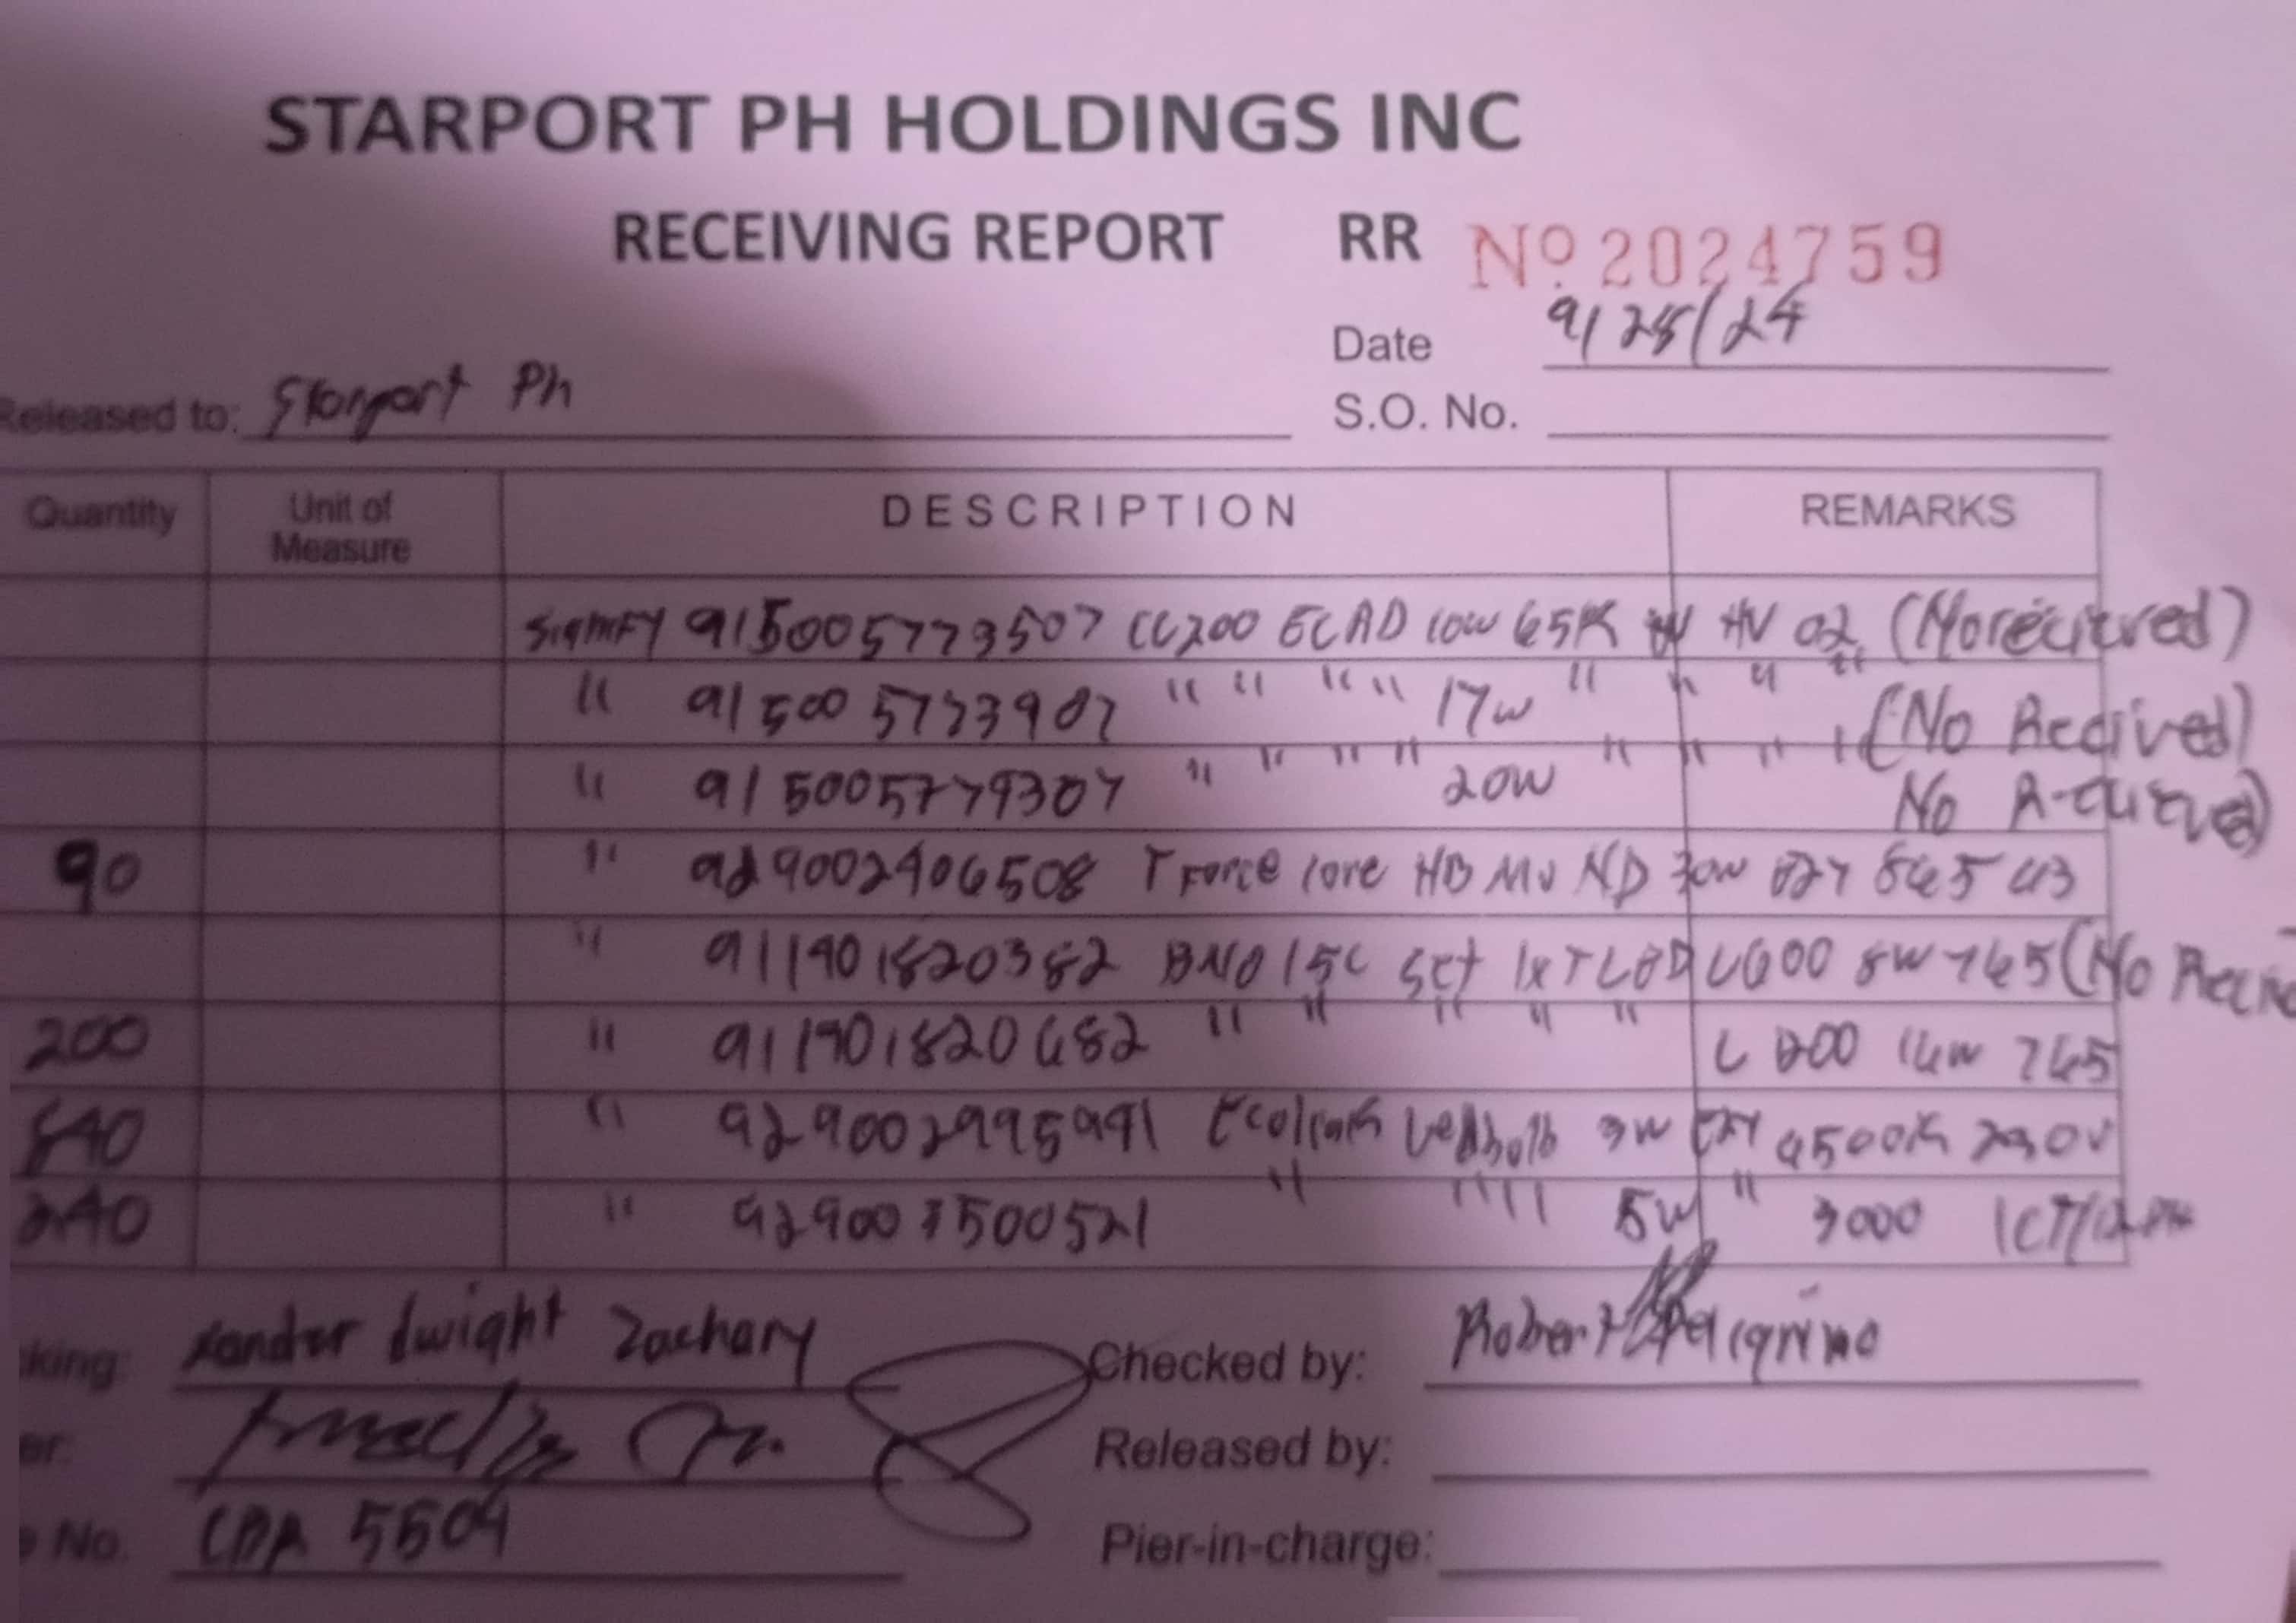 STARPORT PH HOLDINGS INC
RECEIVING REPORT RR Nº 2024759
Date 9/25/24
Released to: Starport Ph
S.O. No.
Quantity Unit of Measure DESCRIPTION REMARKS
Signify 915005773507 CC200 ECAD 10W 65K HV 02
" 915005773907 " " " " 17w " " " " (No Recived)
" 915005779307 " " " " " 20W " " " " No
90 " 929002406508 TForce Core HB MV ND 30w E27 865 G3
" 911401820382 BN015C Set 1xTLED L600 8W 765 (No
200 " 911401820682 " " " " " L1200 16w 765
840 " 929002995991 Ecolink Ledbulb 3W E27 6500K 230V
240 " 929003500521 " " " " 5W " 3000 1CT/12 PH
king: Xander dwight Zachary
Checked by: Robert Pelegrino
er: Jr.
Released by:
No. CDA 5504
Pier-in-charge: